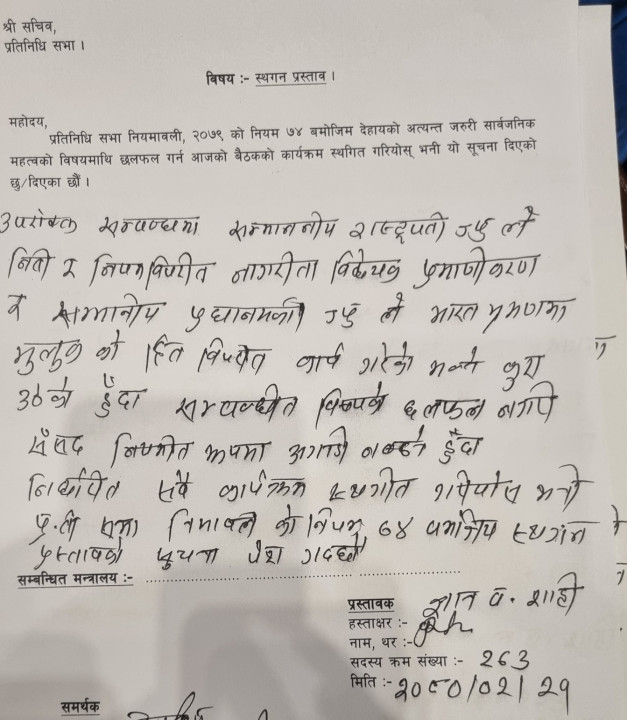 श्री सचिव,
प्रतिनिधि सभा ।
विषय :- स्थगन प्रस्ताव ।
महोदय,
प्रतिनिधि सभा नियमावली, २०७९ को नियम ७४ बमोजिम देहायको अत्यन्त जरुरी सार्वजनिक
महत्वको विषयमाथि छलफल गर्न आजको बैठकको कार्यक्रम स्थगित गरियोस् भनी यो सूचना दिएको
छु/दिएका छौं ।
उपरोक्त सम्वन्धमा सम्माननीय राष्ट्रपती ज्यु ले
निती र नियम विपरीत नागरीता विधेयक प्रमाणीकरण
र सम्मानीय प्रधानमन्त्री ज्यु ले भारत भ्रमणमा
मुलुक को हित विपरीत कार्य गरेको भन्ने कुरा
उठेको हुँदा सम्वन्धीत विषयको छलफल नगरी
सँसद नियमीत रुपमा अगाडी नबढ्ने हुँदा
निर्धारित सवै कार्यक्रम स्थगीत गरियोस भनी
प्र.नी सभा को नियम ७४ वमोजिम स्थगन
प्रस्तावको सुचना पेश गर्दछौ
सम्बन्धित मन्त्रालय :-
प्रस्तावक ज्ञान व. शाही
हस्ताक्षर :-
नाम, थर :-
सदस्य क्रम संख्या :- २६३
मिति :- २०८०/०२/२१
समर्थक